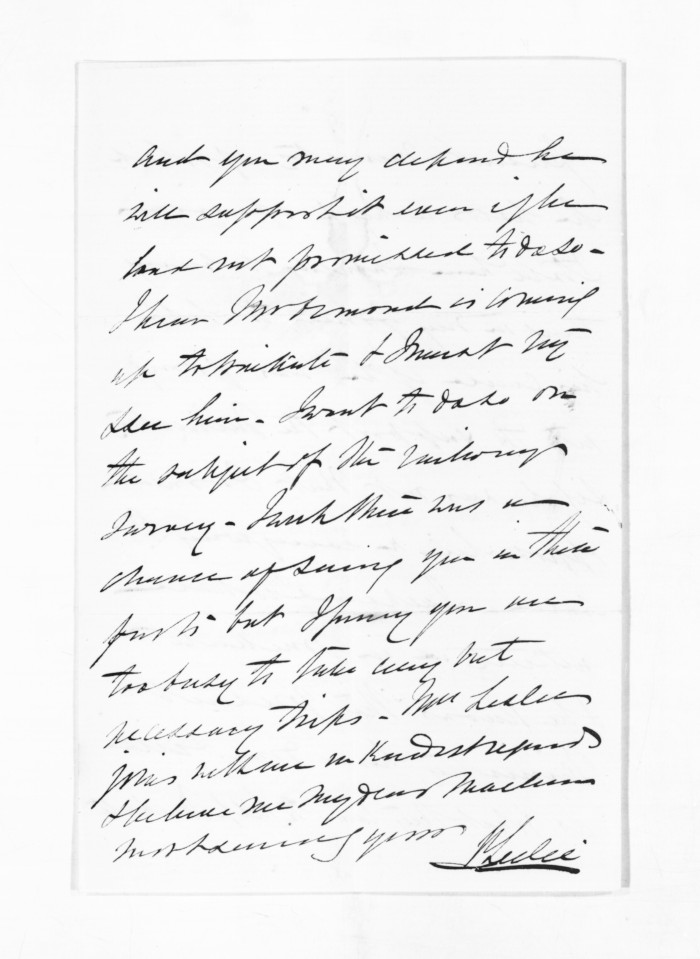 and you may depend he
will support it even if he
had not promised to do so -
I hear Mr Ormond is coming
up to Waikato & I must try
see him - I want to do so on
the subject of the railway
survey - I wish there was a
chance of seeing you in these
parts but I fancy you are
too busy to take any but
necessary trips - Mrs Leslie
joins with me in kindest regards
& believe me my dear Maclean
most sincerely yours
Leslie